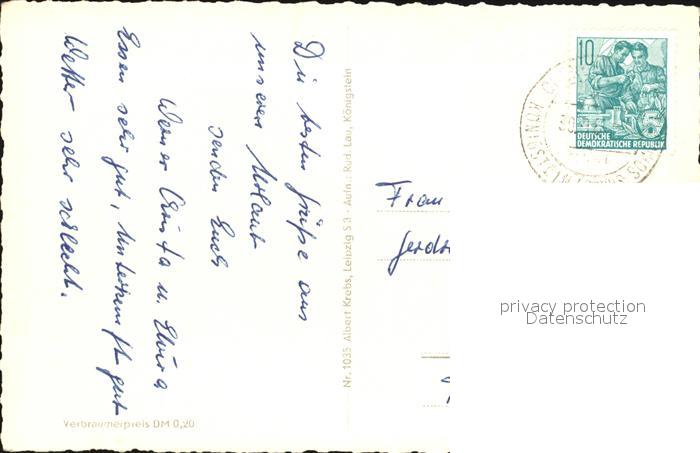 Die besten Grüße aus
unserem Urlaub
senden Euch
Werner Christa u. Elvira
Essen sehr gut, Unterkunft gut
Wetter sehr schlecht.
Verbraucherpreis DM 0,20
Nr. 1035 Albert Krebs, Leipzig S 3 · Aufn. Rud. Lau, Königstein
10
DEUTSCHE
DEMOKRATISCHE REPUBLIK
Frau
privacy protection
Datenschutz